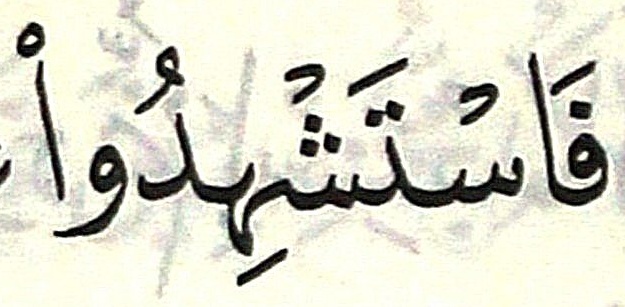 فَاسْتَشْهِدُوا۟